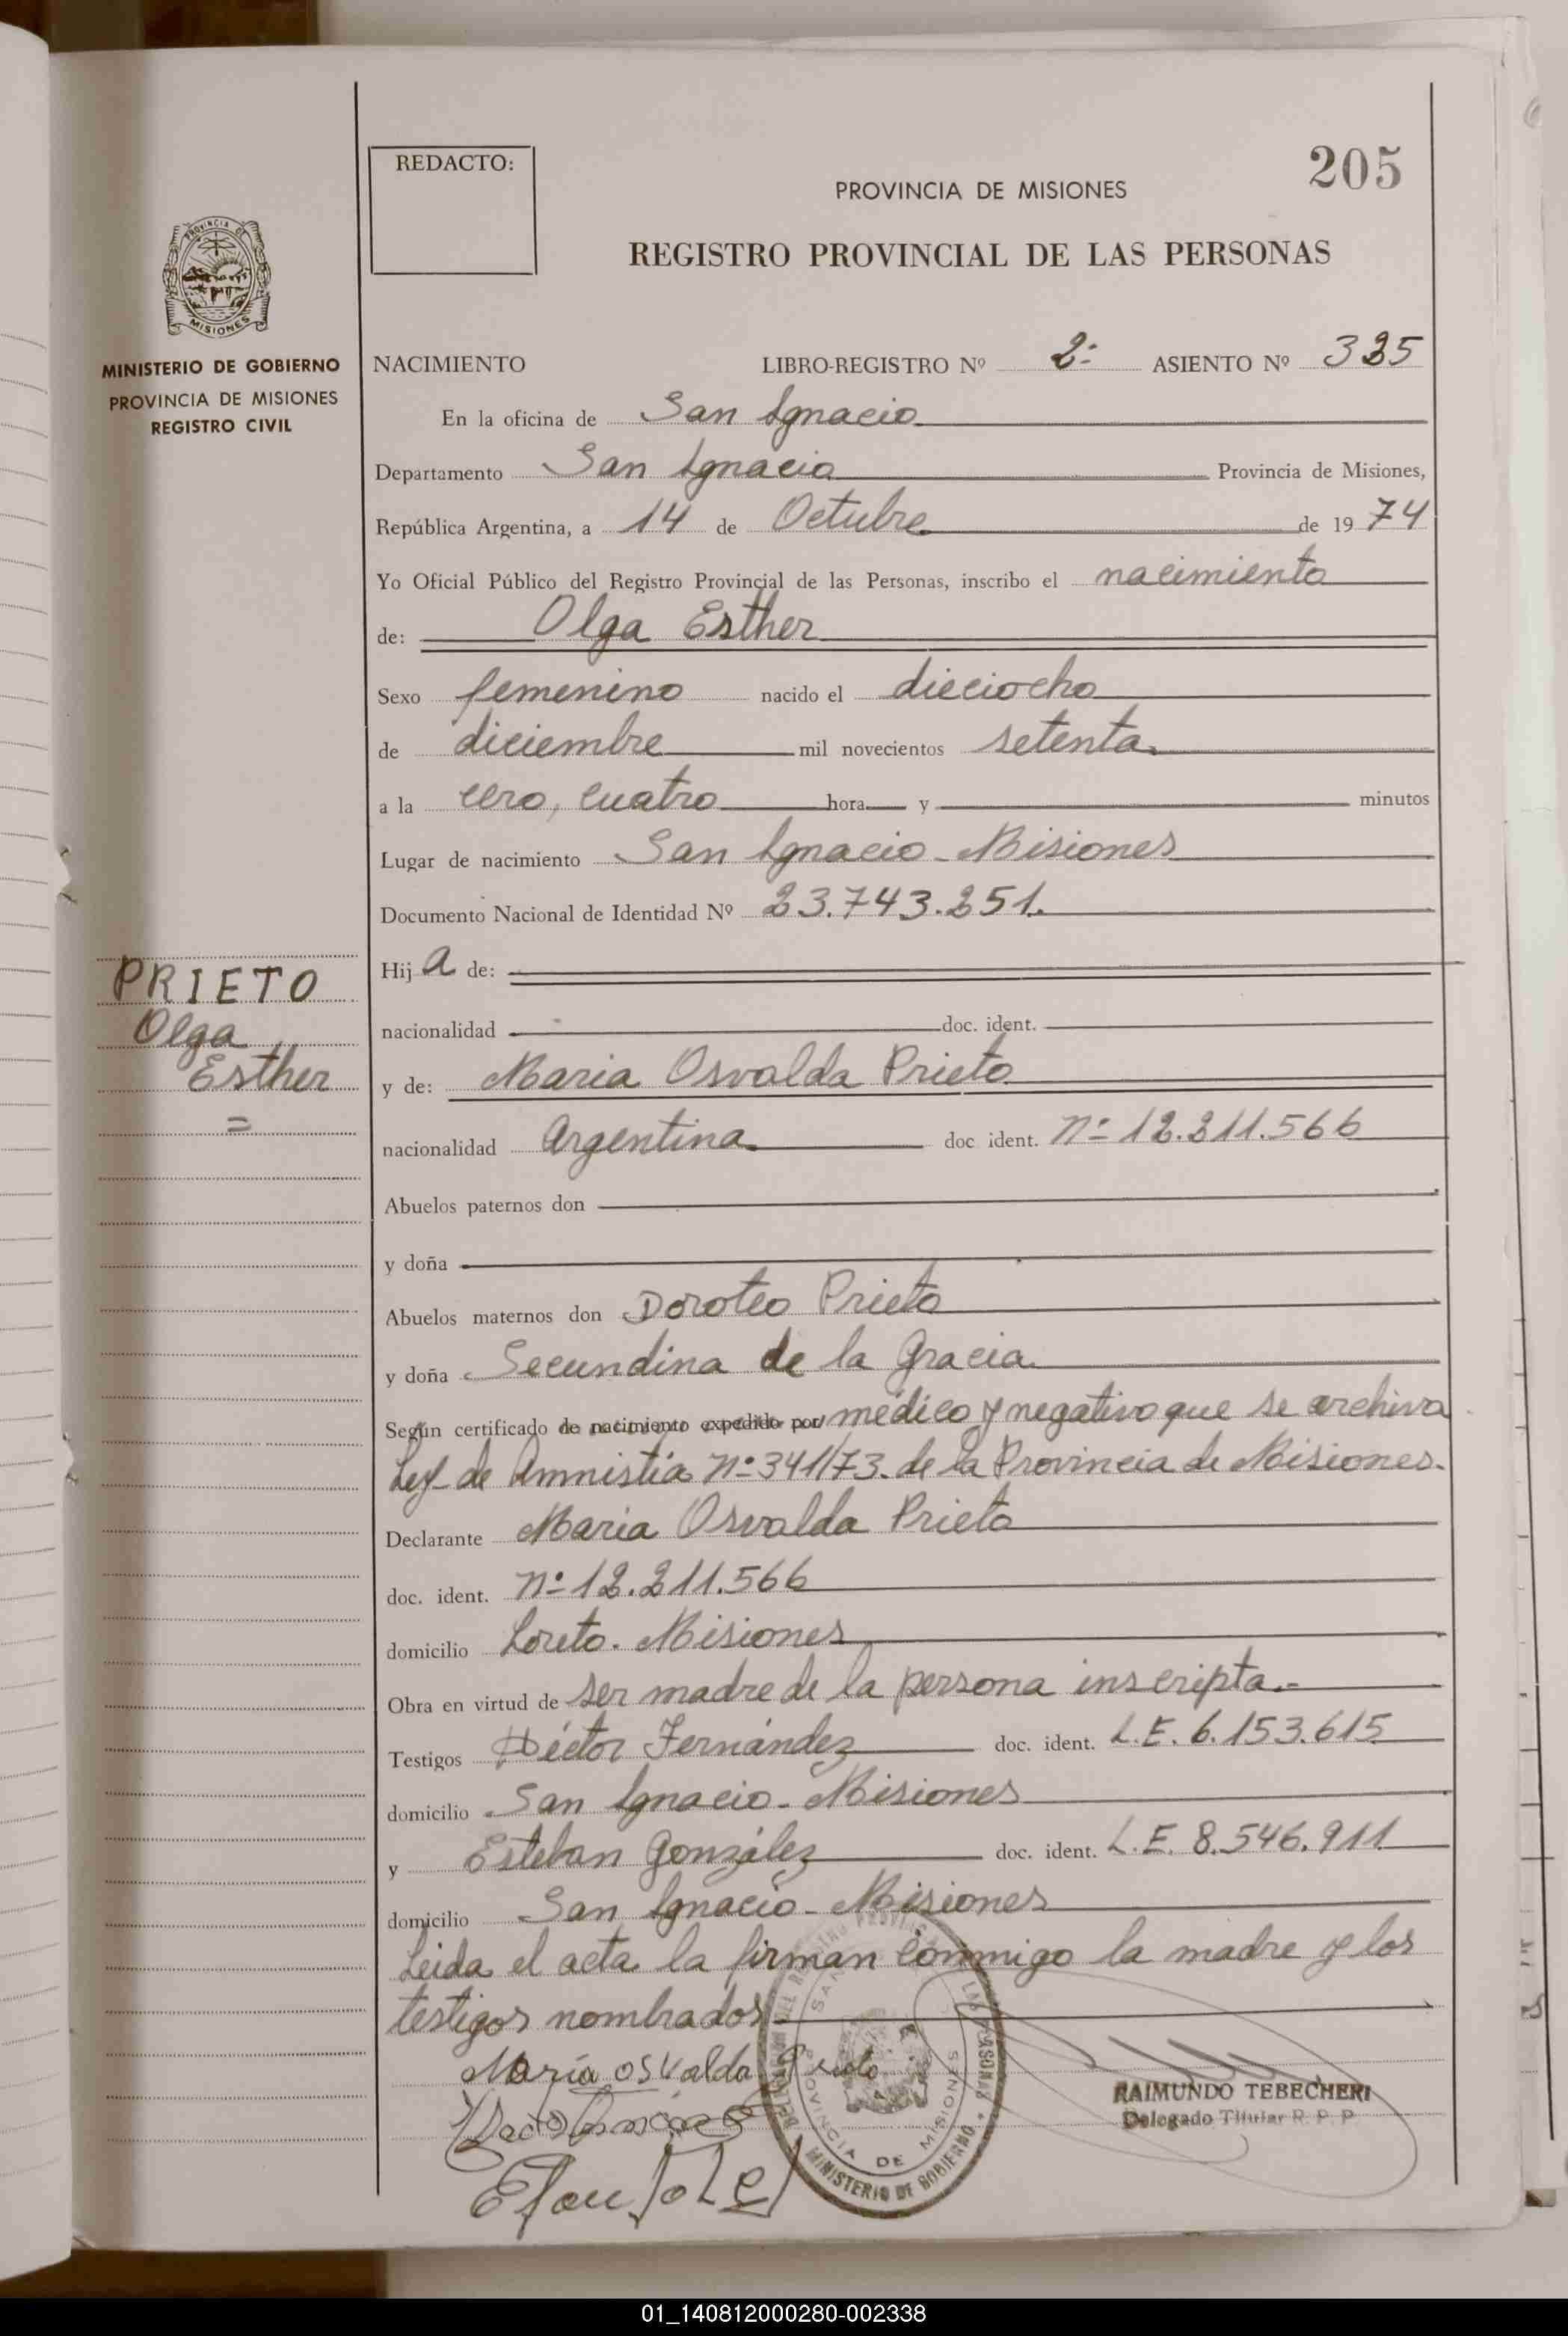 REDACTO:
205
PROVINCIA DE MISIONES
REGISTRO PROVINCIAL DE LAS PERSONAS
PROVINCIA DE
MISIONES
MINISTERIO DE GOBIERNO
PROVINCIA DE MISIONES
REGISTRO CIVIL
NACIMIENTO LIBRO-REGISTRO Nº 2º ASIENTO Nº 325
En la oficina de San Ignacio
Departamento San Ignacio Provincia de Misiones,
República Argentina, a 14 de Octubre de 1974
Yo Oficial Público del Registro Provincial de las Personas, inscribo el nacimiento
de: Olga Esther
Sexo femenino nacido el dieciocho
de diciembre mil novecientos setenta
a la cero, cuatro hora y minutos
Lugar de nacimiento San Ignacio - Misiones
Documento Nacional de Identidad Nº 23.743.251.
Hij a de:
nacionalidad doc. ident.
PRIETO
Olga
Esther
=
y de: Maria Osvalda Prieto
nacionalidad Argentina doc ident. Nº 12.211.566
Abuelos paternos don
y doña
Abuelos maternos don Doroteo Prieto
y doña Secundina de la Gracia
Según certificado de nacimiento expedido por médico y negativo que se archiva
Ley de Amnistía Nº 341/73. de la Provincia de Misiones.
Declarante Maria Osvalda Prieto
doc. ident. Nº 12.211.566
domicilio Loreto. Misiones
Obra en virtud de ser madre de la persona inscripta.-
Testigos Héctor Fernández doc. ident. L.E. 6.153.615
domicilio San Ignacio - Misiones
y Esteban González doc. ident. L.E. 8.546.911
domicilio San Ignacio - Misiones
Leida el acta la firman conmigo la madre y los
testigos nombrados
María osvalda Prieto
RAIMUNDO TEBECHERI
Delegado Titular R. P. P.
PROVINCIA DE MISIONES
MINISTERIO DE GOBIERNO
01_140812000280-002338